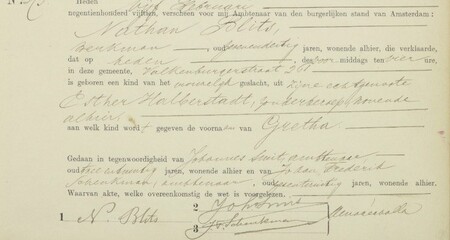 Heden vijf Februari
negentienhonderd vijftien, verscheen voor mij Ambtenaar van den burgerlijken stand van Amsterdam:
Nathan Blits,
werkman, oud jaren, wonende alhier, die verklaarde,
dat op heden des middags ten vier ure,
in deze gemeente, Valkenburgerstraat 201
is geboren een kind van het geslacht, uit zijne echtgenoote
Esther Halberstadt, zonder beroep, wonende
alhier
aan welk kind wordt gegeven de voornaam van Gretha.
Gedaan in tegenwoordigheid van Johannes Smit, ambtenaar
oud jaren, wonende alhier en van Frederik
Schenkman, ambtenaar, oud jaren, wonende alhier.
Waarvan akte, welke overeenkomstig de wet is voorgelezen.
1 N. Blits 2 Joh Smit
3 Schenkman